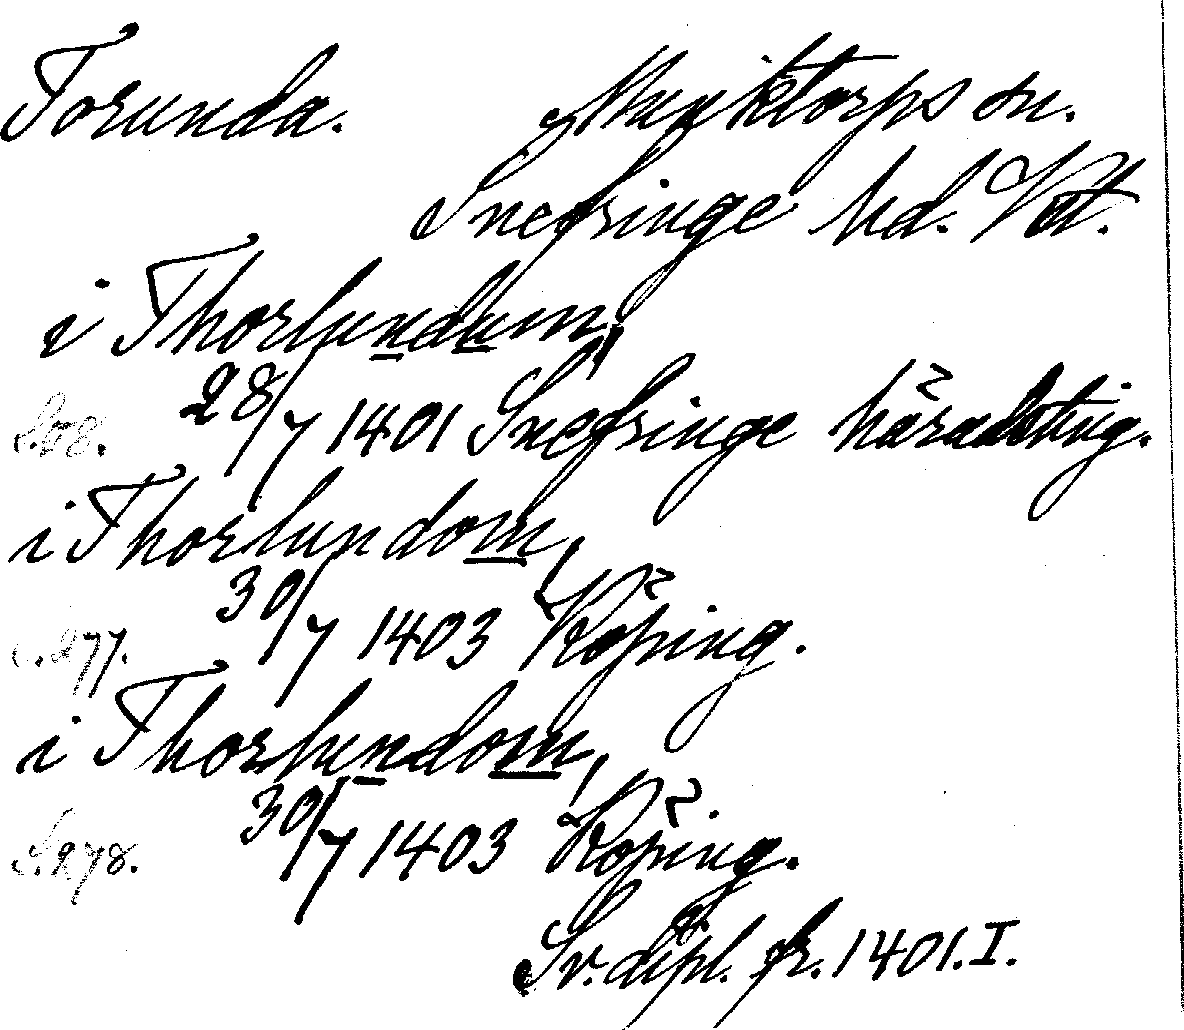 Torunda. Munktorps sn.
Snefringe hd. Vstm.
i Thorlundum,
S. 68. 28/7 1401 Snefringe häradsting.
i Thorlundom,
S. 277. 30/7 1403 Köping.
i Thorlundom,
S. 278. 30/7 1403 Köping.
Sv. dipl. fr. 1401. I.